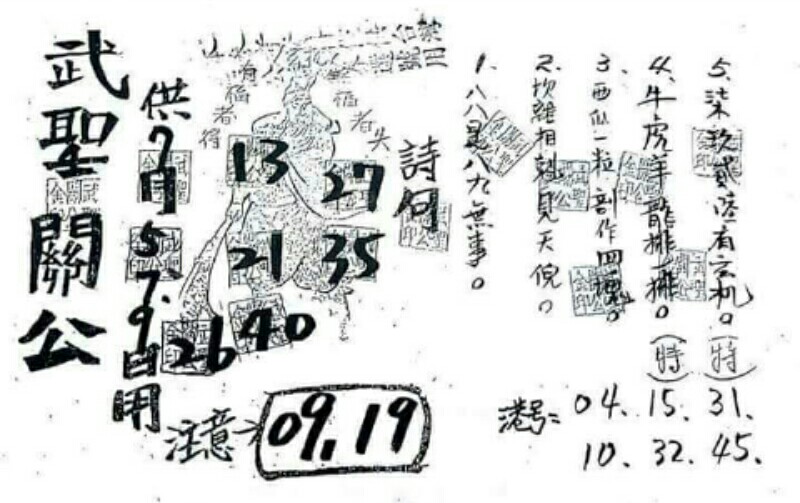 武聖關公
供7月5.7.9日用
有福者得
無福者失
13
27
21
35
26
40
注意
09,19
詩句
1.八八是八九無事。
2.坎離相剋見天倪。
3.西瓜一粒剖作四
4.牛虎羊龍排一排。(特)
5.柒玖貳陸有玄机。(特)
港号: 04. 15. 31.
10. 32. 45.